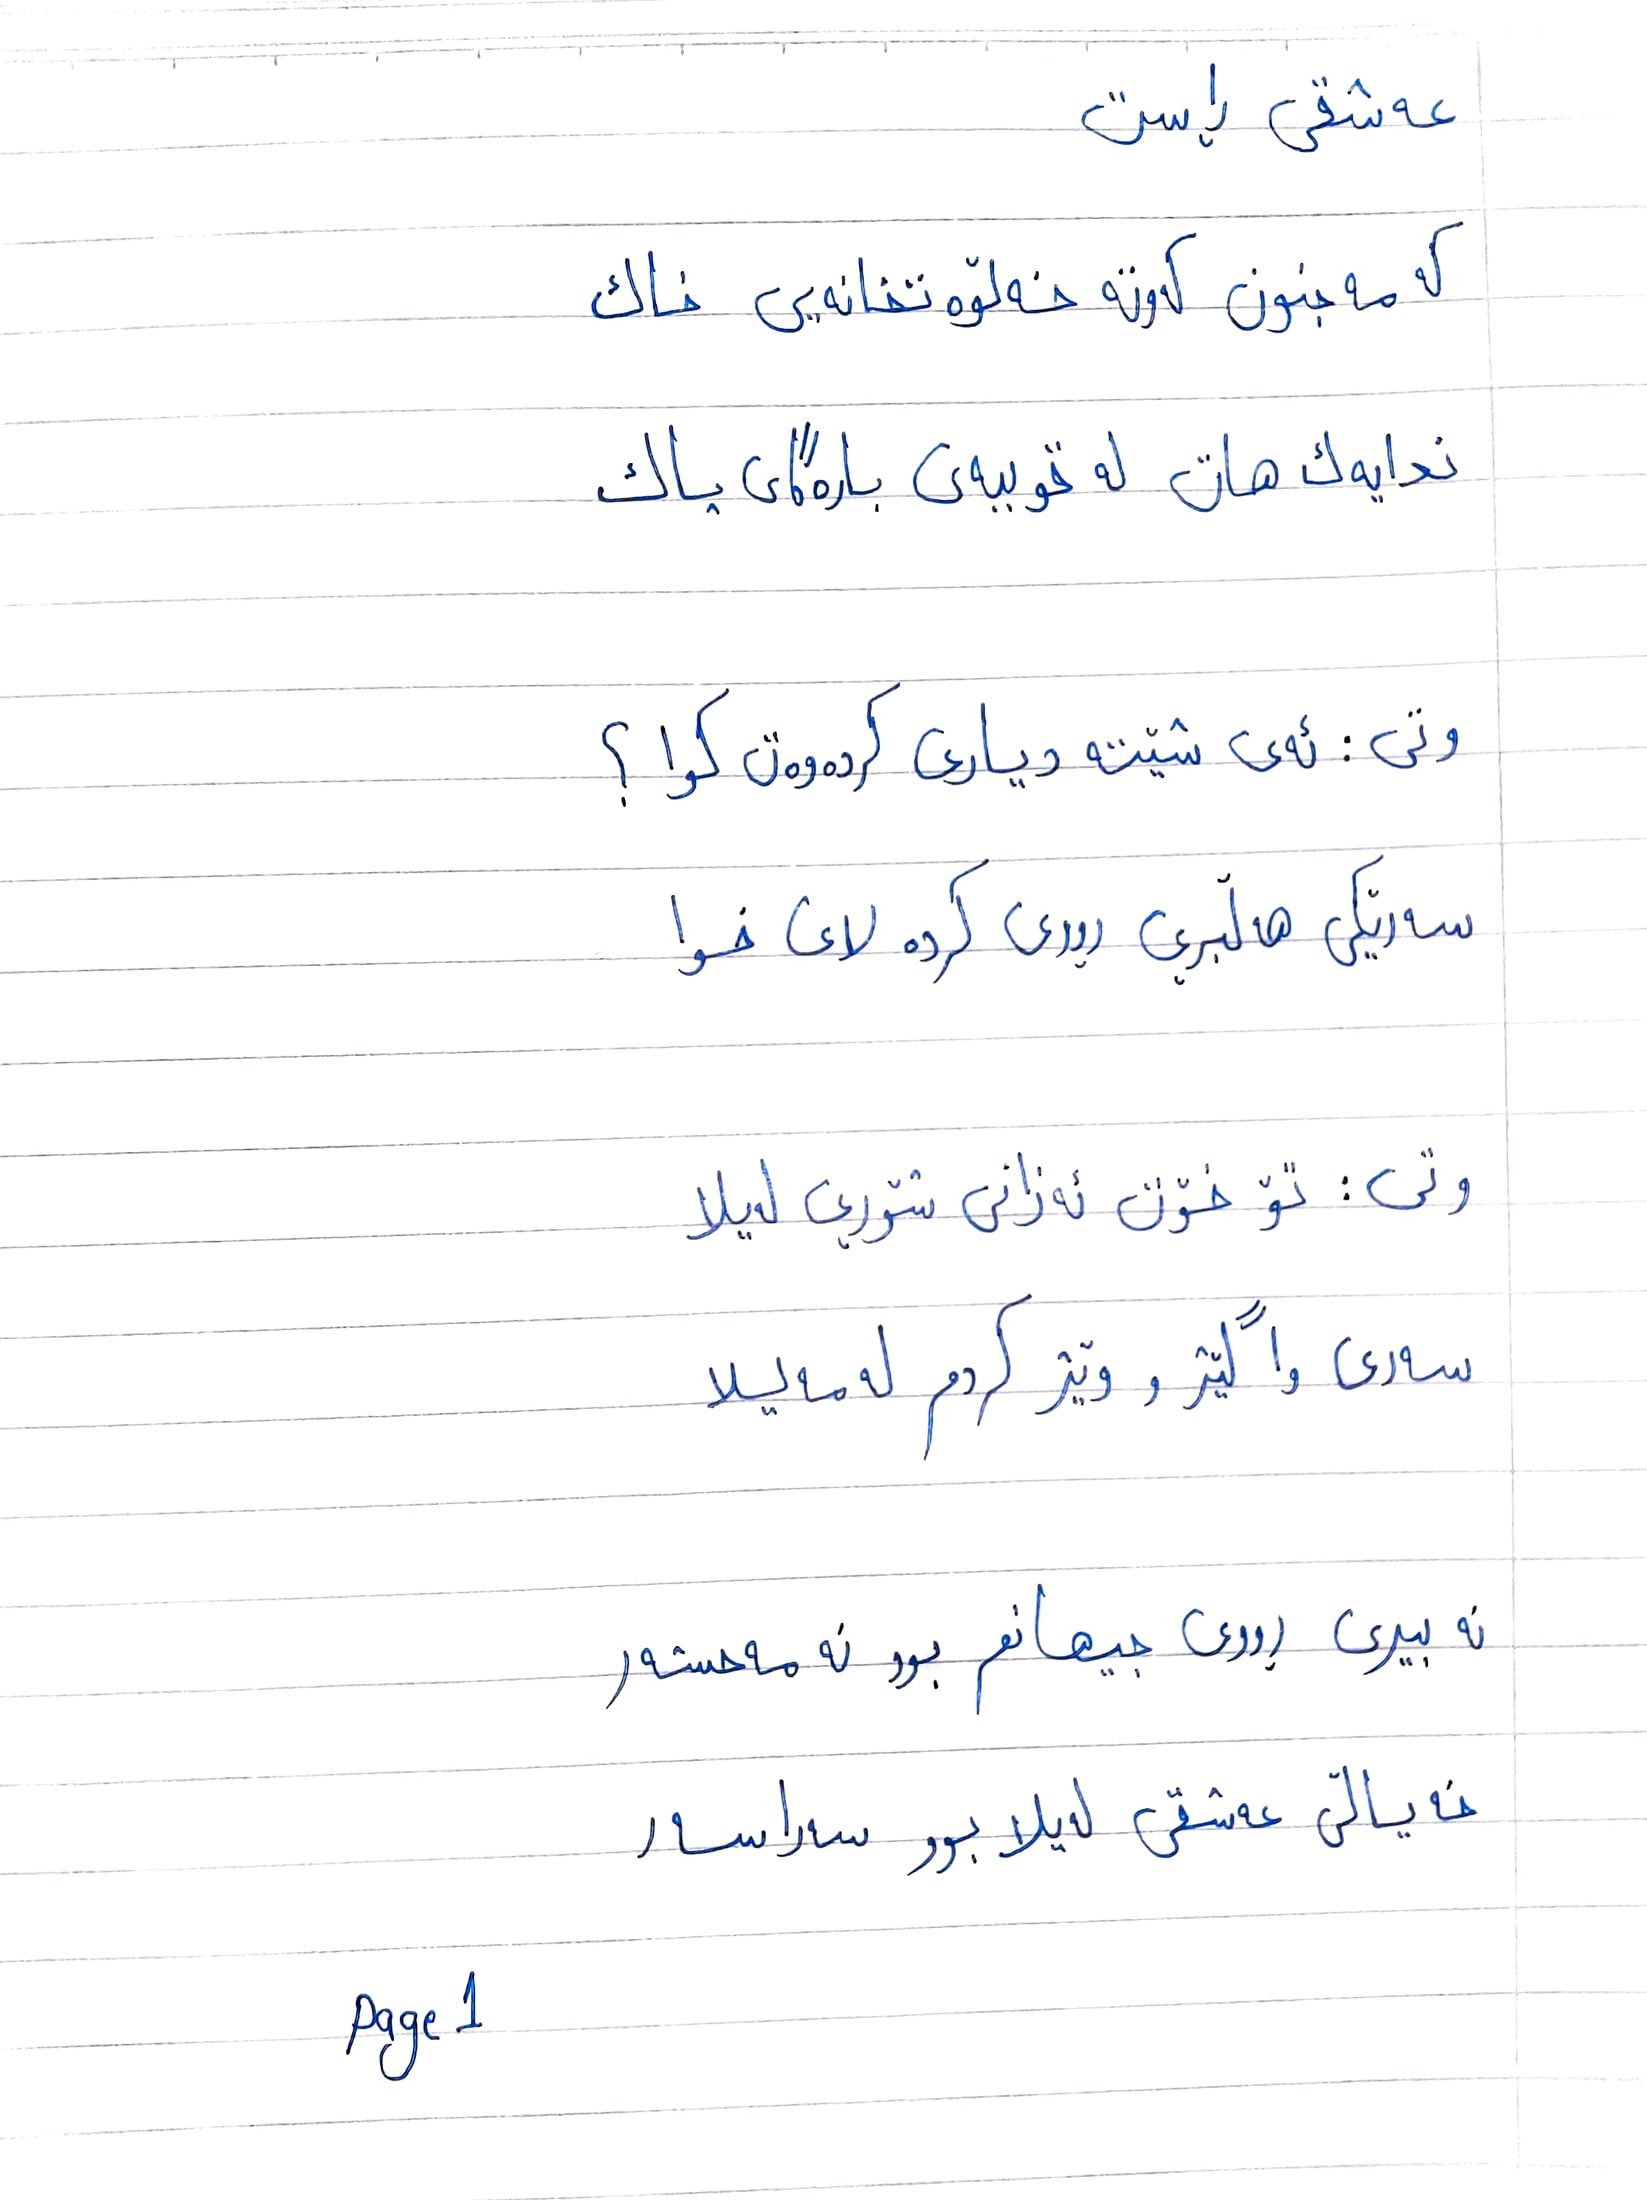 عەشقی ڕاست
کە مەجنون کەوتە خەلۆەتخانەیی خاك
ندایەك هات لە قوببەی بارەگای پاك
وتی: ئەی شێتە دیاری کردەوەت کوا؟
سەرێکی هەڵبڕی ڕووی کردە لای خوا
وتی: تۆ خۆت ئەزانی شۆڕی لەیلا
سەری وا گێژ و وێژ کردم لەمەیلا
نە بیری ڕووی جیهانم بوو نە مەحشەر
خەیاڵی عەشقی لەیلا بوو سەراسەر
Page 1